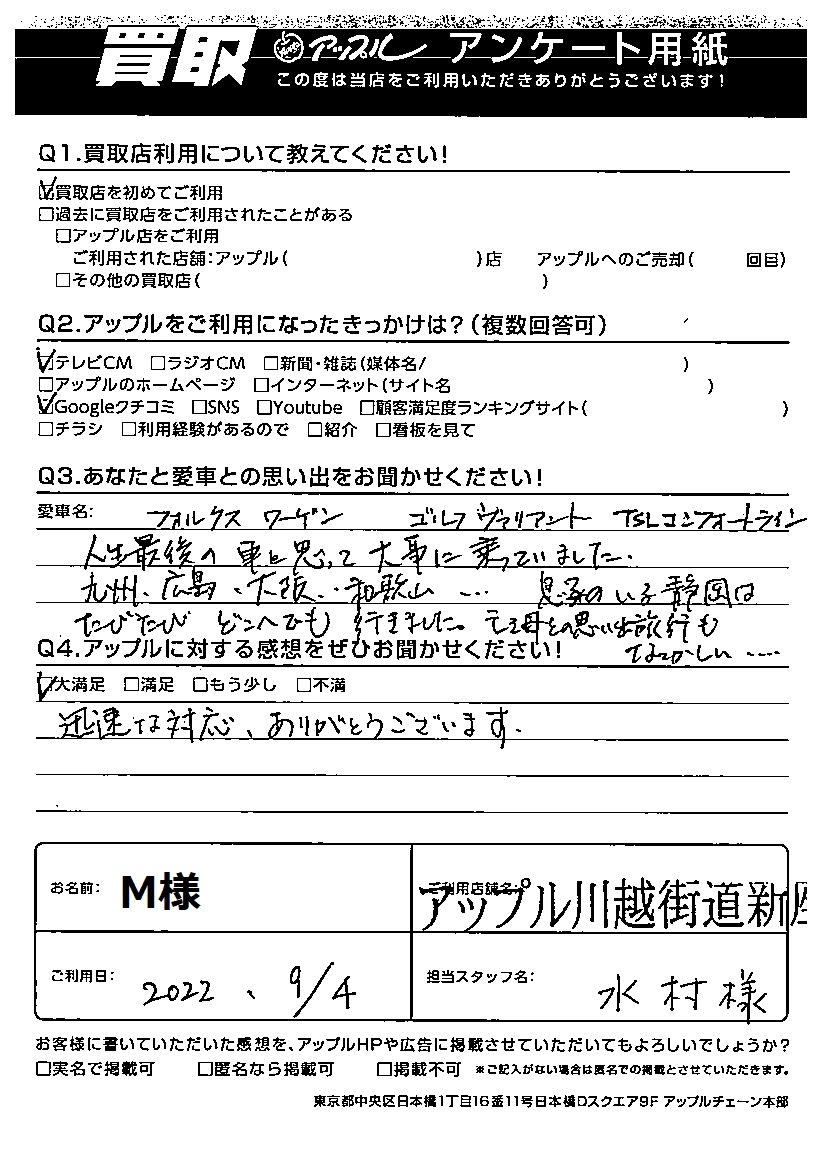 買取 アップル アンケート用紙
この度は当店をご利用いただきありがとうございます!
Q1.買取店利用について教えてください!
☑買取店を初めてご利用
□過去に買取店をご利用されたことがある
□アップル店をご利用
ご利用された店舗:アップル( )店 アップルへのご売却( 回目)
□その他の買取店( )
Q2.アップルをご利用になったきっかけは?(複数回答可)
☑テレビCM □ラジオCM □新聞・雑誌(媒体名/ )
□アップルのホームページ □インターネット(サイト名 )
☑Googleクチコミ □SNS □Youtube □顧客満足度ランキングサイト( )
□チラシ □利用経験があるので □紹介 □看板を見て
Q3.あなたと愛車との思い出をお聞かせください!
愛車名: フォルクスワーゲン ゴルフヴァリアント TSLコンフォートライン
人生最後の車と思って大事に乗っていました.
九州、広島、大阪、和歌山 … 息子のいる静岡は
たびたび どこへでも 行きました。 亡き母との思い出旅行も
なつかしい ‥‥
Q4.アップルに対する感想をぜひお聞かせください!
☑大満足 □満足 □もう少し □不満
迅速な対応、ありがとうございます.
お名前: M様
ご利用店舗名:
アップル川越街道新座
ご利用日: 2022、9/4
担当スタッフ名: 水村様
お客様に書いていただいた感想を、アップルHPや広告に掲載させていただいてもよろしいでしょうか?
□実名で掲載可 □匿名なら掲載可 □掲載不可 ※ご記入がない場合は匿名での掲載とさせていただきます。
東京都中央区日本橋1丁目16番11号日本橋Dスクエア9F アップルチェーン本部